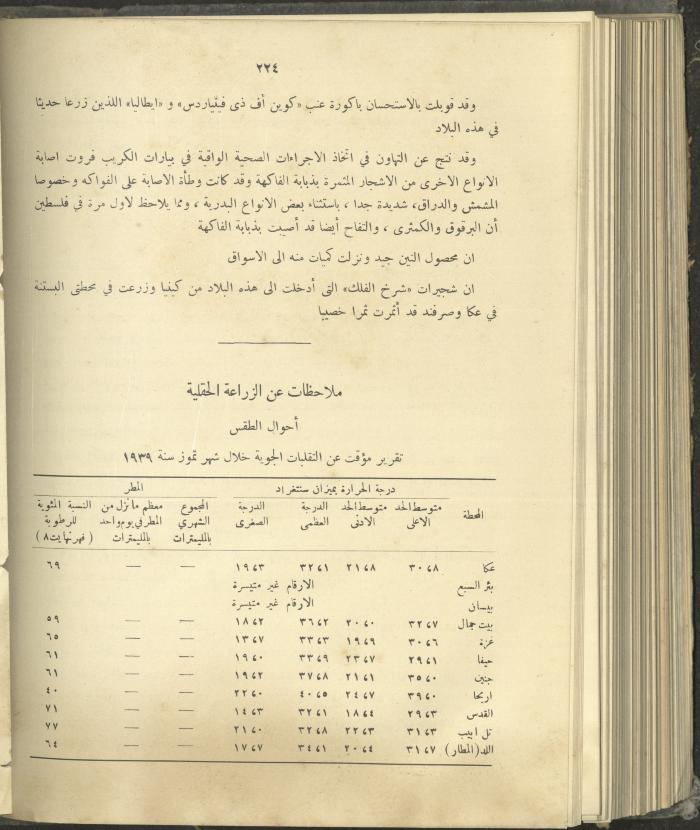 ٢٢٤
وقد قوبلت بالاستحسان باكورة عنب «كوين أف ذى فينياردس» و «ايطاليا» اللذين زرعا حديثا
في هذه البلاد
وقد نتج عن التهاون في اتخاذ الاجراءات الصحية الواقية في بيارات الكريب فروت اصابة
الانواع الاخرى من الاشجار المثمرة بذبابة الفاكهة وقد كانت وطأة الاصابة على الفواكه وخصوصا
المشمش والدراق، شديدة جدا ، باستثناء بعض الانواع البدرية ، ومما يلاحظ لاول مرة في فلسطين
أن البرقوق والكمثرى ، والتفاح أيضا قد أصيبت بذبابة الفاكهة
ان محصول التين جيد ونزلت كميات منه الى الاسواق
ان شجيرات «شرخ الفلك» التى أدخلت الى هذه البلاد من كينيا وزرعت في محطتى البستنة
في عكا وصرفند قد أثمرت ثمرا خصيبا
ملاحظات عن الزراعة الحقلية
أحوال الطقس
تقرير مؤقت عن التقلبات الجوية خلال شهر تموز سنة ١٩٣٩
درجة الحرارة بميزان سنتغراد المطر
المحطة متوسط الحد الاعلى متوسط الحد الادنى الدرجة العظمى الدرجة الصغرى المجموع الشهري بالمليمترات معظم ما نزل من المطر في يوم واحد بالمليمترات النسبة المئوية للرطوبة (فهرنهايت ٨)
عكا ٣٠،٨ ٢١،٨ ٣٢،١ ١٩،٣ — — ٦٩
بئر السبع الارقام غير متيسرة
بيسان الارقام غير متيسرة
بيت جمال ٣٢،٧ ٢٠،٠ ٣٦،٢ ١٨،٢ — — ٥٩
غزة ٣٠،٦ ١٩،٩ ٣٣،٣ ١٣،٧ — — ٦٥
حيفا ٢٩،١ ٢٣،٧ ٣٣،٩ ١٩،٠ — — ٦١
جنين ٣٥،٠ ٢١،١ ٣٧،٨ ١٩،٢ — — ٦١
اريحا ٣٩،٠ ٢٤،٧ ٤٠،٥ ٢٢،٠ — — ٤٠
القدس ٢٩،٣ ١٨،٤ ٣٢،١ ١٤،٣ — — ٧١
تل ابيب ٣١،٣ ٢٢،٣ ٣٢،٨ ٢١،٠ — — ٧٧
اللد (المطار) ٣١،٧ ٢٠،٤ ٣٤،١ ١٧،٧ — — ٦٤